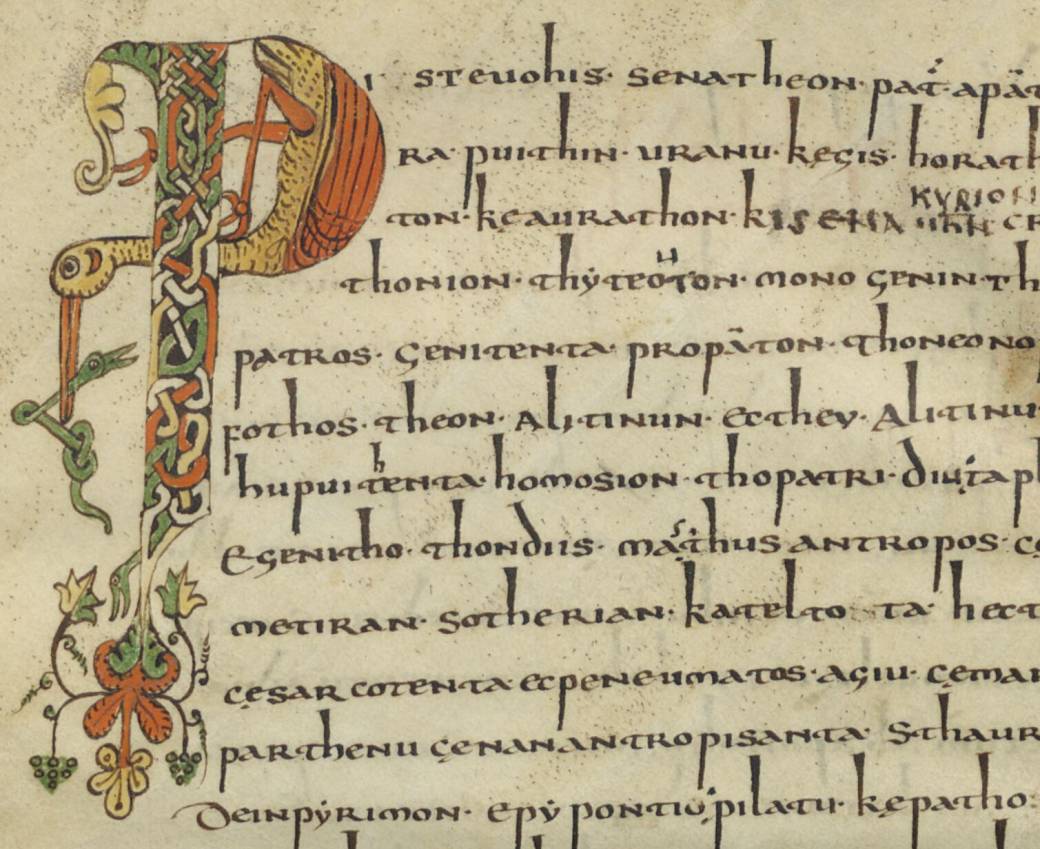 PI STEUOHIS· SENATHEON· PAT·APAT
RA· PUITHIN· URANU· KEGIS· HORATH
KYRION
TON· KEAURATHON· KISENA CR
THONION· THYTEOTON· MONO GENIN·TH
PATROS· GENITENTA· PROPATON· THONEONO
FOTHOS· THEON· ALITINUN· ECTHEY· ALITINU
HUPUITENTA· HOMOSION· THOPATRI· DIUTAPH
EGENITHO· THONDIIS· MATHUS ANTROPOS· CE
METIRAN· SOTHERIAN· KATELTO TA· HECT
CESARCOTENTA· ECPENEUMATOS· AGIU· CEMAR
PARTHENU CENANANTROPISANTA· STHAUR
DEINPYRIMON· EPY PONTIU PILATU· KEPATHO